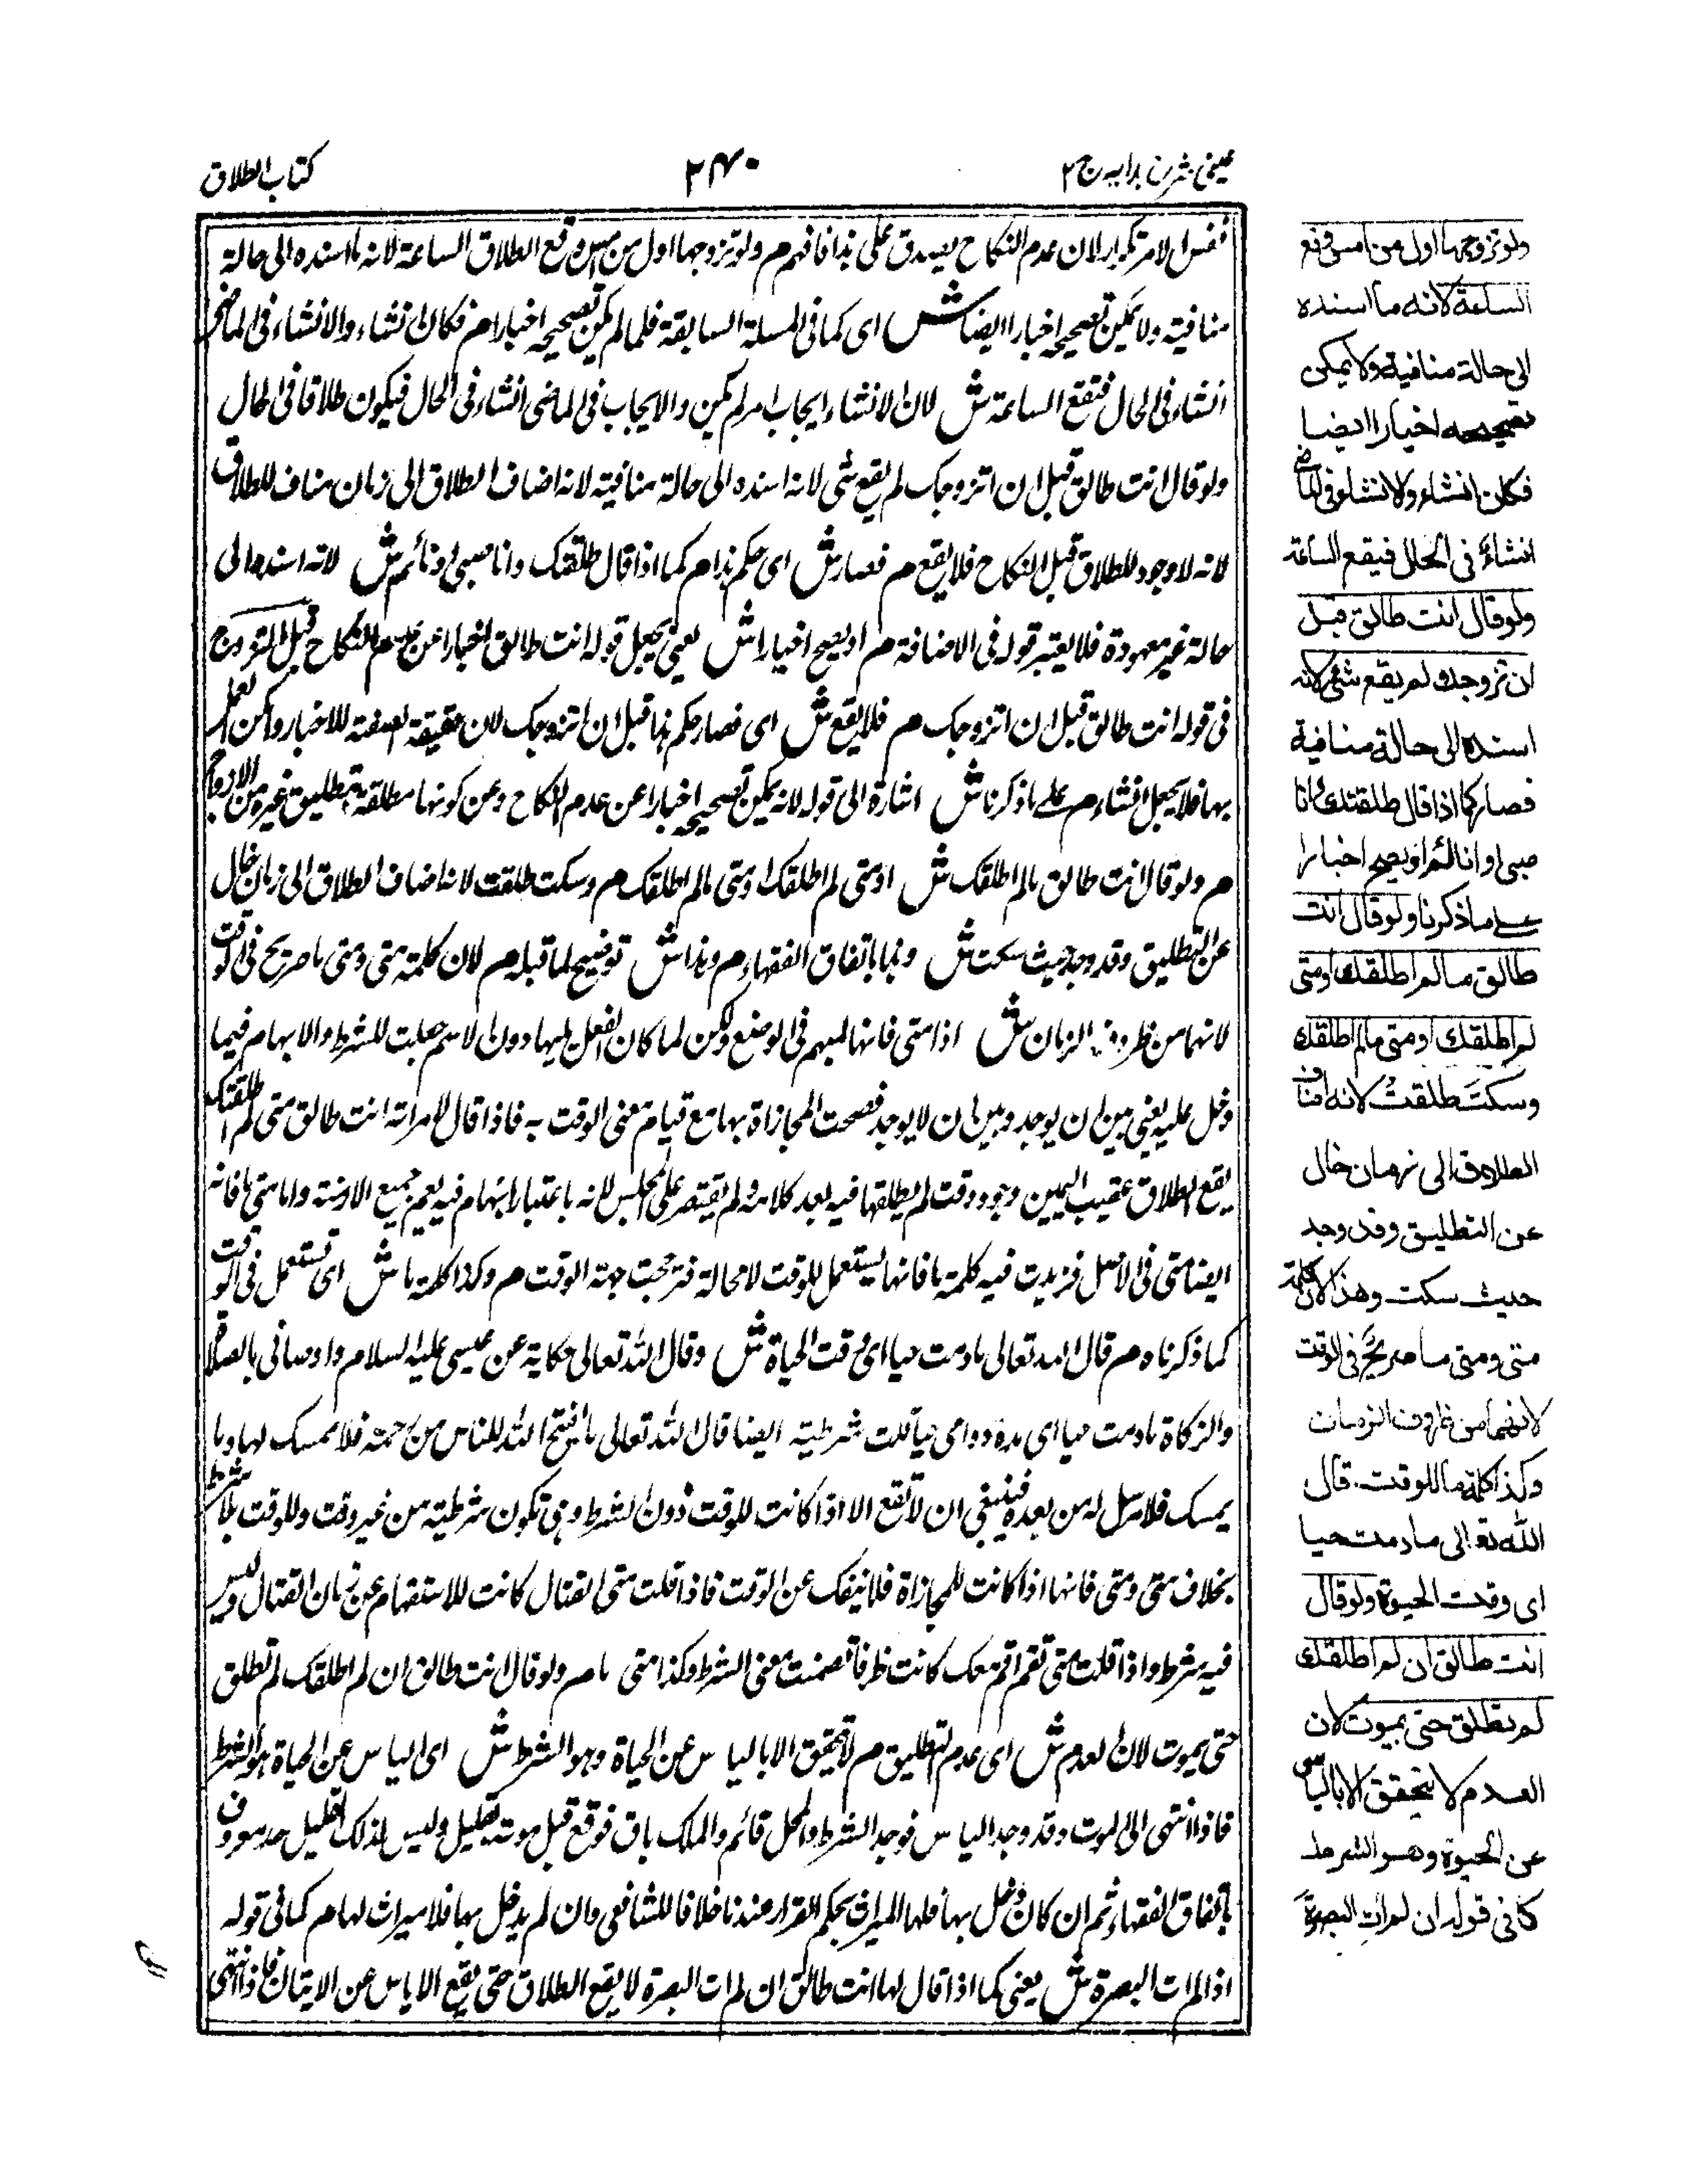 عینی شرح ہدایہ ج ۲
۲۴۰
كتاب الطلاق
نفس الامر تكرار لان عدم النكاح يصدق على هذا فافهم م ولو تزوجها اول من امس وقع الطلاق الساعة لانه ما اسنده الى حالة
منافية ولا يمكن تصحيحه اخبارا ايضا ش اى كما فى المسئلة السابقة فلما لم يكن تصحيحه اخبارا م فكان انشاء والانشاء فى الماضى
انشاء فى الحال فتقع الساعة ش لان الانشاء ايجاب امر لم يكن والايجاب فى الماضى انشاء فى الحال فيكون طلاقا فى الحال
ولو قال انت طالق قبل ان اتزوجك لم يقع شى لانه اسنده الى حالة منافية لانه اضاف الطلاق الى زمان مناف للطلاق
لانه لا وجود للطلاق قبل النكاح فلا يقع م فصار ش اى حكم هذا م كما اذا قال طلقتك وانا صبى او نائم ش لانه اسنده الى
حالة غير معهودة فلا يعتبر قوله فى الاضافة م او يصح اخبارا ش يعنى يجعل قوله انت طالق اخبارا عن عدم النكاح قبل التزوج
فى قوله انت طالق قبل ان اتزوجك م فلا يقع ش اى فصار حكم هذا قبل ان اتزوجك لان حقيقة الصفة للاخبار وامكن العمل
بها فلا يجعل انشاء م على ما ذكرنا ش اشارة الى قوله لانه يمكن تصحيحه اخبارا عن عدم النكاح وعن كونها مطلقة بتطليق غيره من الازواج
م ولو قال انت طالق ما لم اطلقك ش او متى لم اطلقك او متى ما لم اطلقك م وسكت طلقت لانه اضاف الطلاق الى زمان خال
عن التطليق وقد وجد حيث سكت ش وهذا باتفاق الفقهاء م وهذا ش توضيح لما قبله م لان كلمة متى ومتى ما صريح فى الوقت
لانهما من ظروف الزمان ش اذا متى فانها لمبهم فى الوضع ولكن لما كان الفعل يليها دون الاسم جعلت للشرط والابهام فيما
دخل عليه يعنى بين ان يوجد وبين ان لا يوجد فصحت المجازاة بها مع قيام معنى الوقت به فاذا قال لامراته انت طالق متى لم اطلقتك
يقع الطلاق عقيب اليمين وجود وقت لم يطلقها فيه بعد كلامه ولم يقتصر على المجلس لانه باعتبار ابهام فيه يعم جميع الازمنة واما متى ما فانه
ايضا متى فى الاصل فزيدت فيه كلمة ما فانها يستعمل للوقت لا محالة فترجحت جهة الوقت م وكذا كلمة ما ش اى تستعمل فى الوقت
كما ذكرناه م قال الله تعالى ما دمت حيا اى وقت الحياة ش وقال الله تعالى حكاية عن عيسى عليه السلام واوصانى بالصلاة
والزكاة ما دمت حيا اى مدة دوامى حيا قلت شرطية ايضا قال الله تعالى ما يفتح الله للناس من رحمة فلا ممسك لها وما
يمسك فلا مرسل له من بعده فينبغى ان لا تقع الا اذا كانت للوقت دون الشرط وهى تكون شرطية من غير وقت وللوقت بلا شرط
بخلاف متى ومتى فانها اذا كانت للمجازاة فلا ينفك عن الوقت فاذا قلت متى القتال كانت للاستفهام عن زمان القتال وليس
فيه شرط واذا قلت متى تقم اقم معك كانت ظرفا تضمنت معنى الشرط وكذا متى ما م ولو قال انت طالق ان لم اطلقك لم تطلق
حتى يموت لان العدم ش اى عدم التطليق م لا يتحقق الا بالياس عن الحياة وهو الشرط ش اى الياس عن الحياة هو الشرط
فاذا انتهى الى الموت وقد وجد الياس فوجد الشرط والمحل قائم والملك باق فوقع قبل موته بقليل وليس لذلك القليل حد معروف
باتفاق الفقهاء ثم ان كان دخل بها فلها الميراث بحكم الفرار عندنا خلافا للشافعى وان لم يدخل بها فلا ميراث لها م كما فى قوله
اذا لم ات البصرة ش يعنى كما اذا قال لها انت طالق ان لم ات البصرة لا يقع الطلاق حتى يقع الاياس عن الاتيان فاذا انتهى
ولو تزوجها اول من امس وقع
الساعة لانه ما اسنده
الى حالة منافية ولا يمكن
تصحيحه اخبارا ايضا
فكان انشاء والانشاء فى الماضى
انشاءً فى الحال فيقع الساعة
ولو قال انت طالق قبل
ان تزوجك لم يقع شئ لانه
اسنده الى حالة منافية
فصار كما اذا قال طلقتك وانا
صبى او نائم او يصح اخبارا
على ما ذكرنا ولو قال انت
طالق ما لم اطلقك او متى
لم اطلقك او متى ما لم اطلقك
وسكتَ طلقتْ لانه اضاف
الطلاق الى زمان خال
عن التطليق وقد وجد
حيث سكت وهذا لان كلمة
متى ومتى ما صريحٌ فى الوقت
لانهما من ظروف الزمان
وكذا كلمة ما للوقت قال
الله تعالى ما دمت حيا
اى وقت الحيوة ولو قال
انت طالق ان لم اطلقك
لم تطلق حتى يموت لان
العدم لا يتحقق الا بالياس
عن الحيوة وهو الشرط
كما فى قوله ان لم ات البصرة